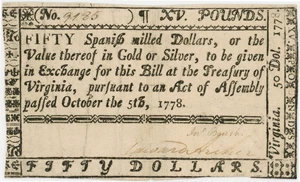 No. ) ¶ XV. POUNDS.
FIFTY Spanish milled Dollars, or the
Value thereof in Gold or Silver, to be given
in Exchange for this Bill at the Treasury of
Virginia, pursuant to an Act of Assembly
passed October the 5th, 1778.
FIFTY DOLLARS.
Virginia. 50 Dol. 1778.